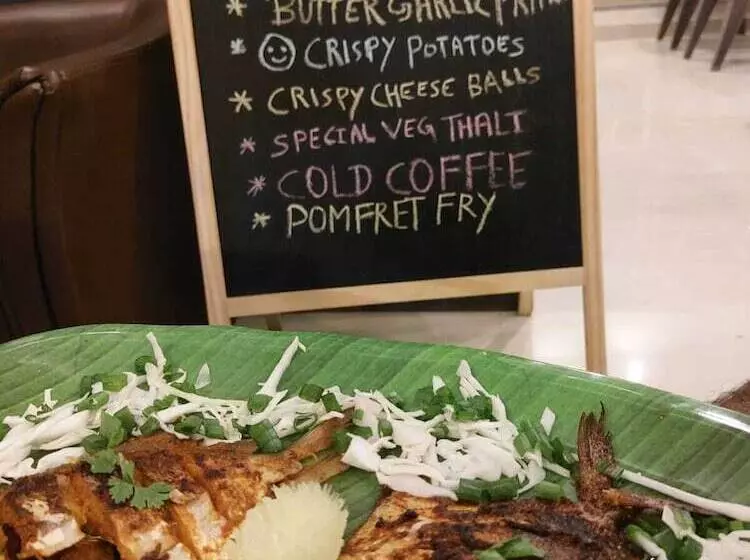 * BUTTER GARLIC
* ☺ CRISPY POTATOES
* CRISPY CHEESE BALLS
* SPECIAL VEG THALI
* COLD COFFEE
* POMFRET FRY